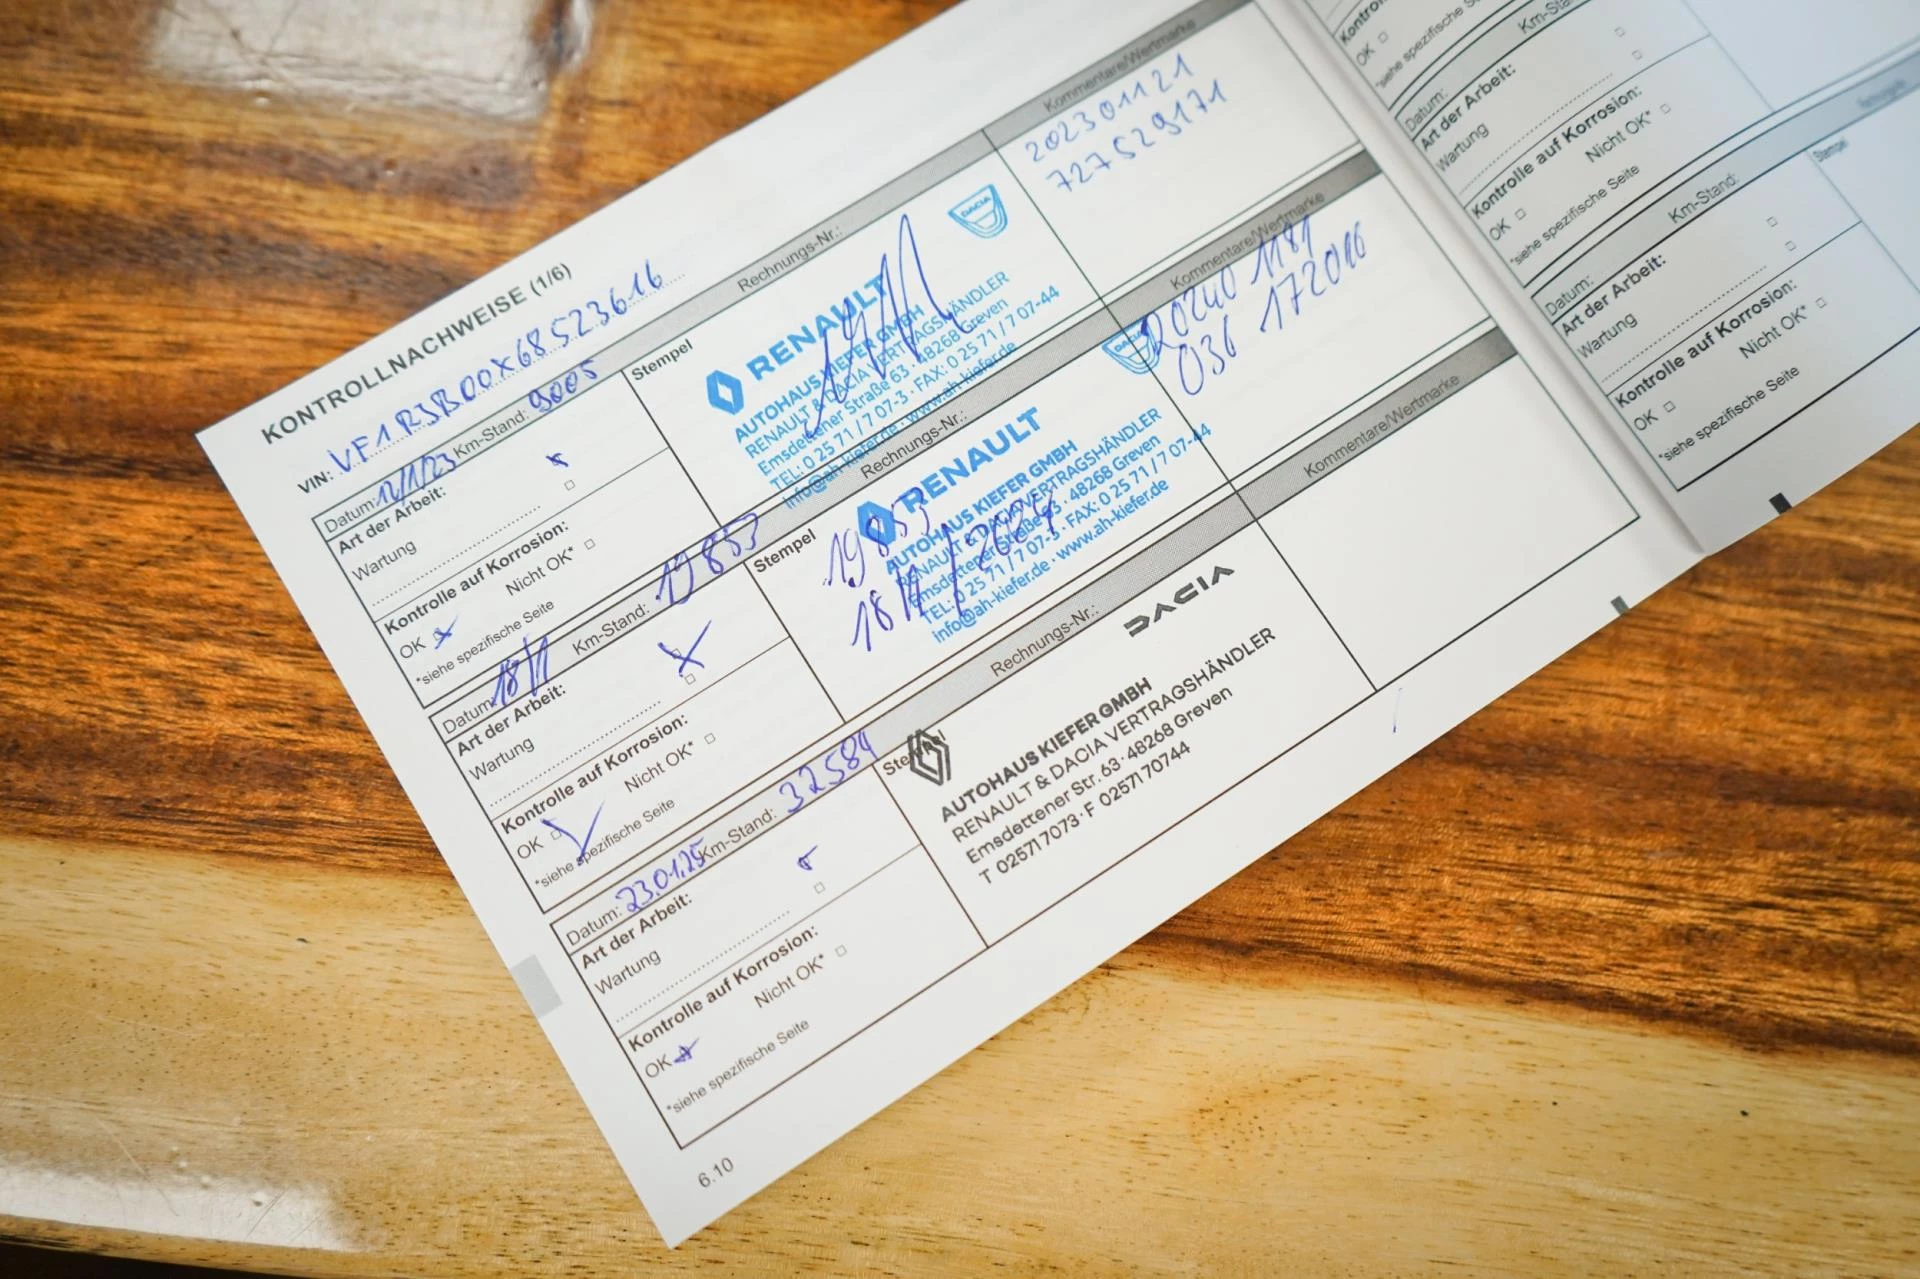 KONTROLLNACHWEISE (1/6)
VIN: VF1RJB00X68523616
Datum: 12/1/23 Km-Stand: 9005 Rechnungs-Nr.: Kommentare/Wertmarke
Art der Arbeit:
Wartung
Kontrolle auf Korrosion:
OK Nicht OK*
*siehe spezifische Seite
Stempel
DACIA
RENAULT
AUTOHAUS KIEFER GMBH
RENAULT & DACIA VERTRAGSHÄNDLER
Emsdettener Straße 63 · 48268 Greven
TEL: 0 25 71 / 7 07-3 · FAX: 0 25 71 / 7 07-44
info@ah-kiefer.de · www.ah-kiefer.de
202301121
727529171
Datum: 18/1 Km-Stand: 19853 Rechnungs-Nr.: Kommentare/Wertmarke
Art der Arbeit:
Wartung
Kontrolle auf Korrosion:
OK Nicht OK*
*siehe spezifische Seite
Stempel
DACIA
RENAULT
AUTOHAUS KIEFER GMBH
RENAULT & DACIA VERTRAGSHÄNDLER
Emsdettener Straße 63 · 48268 Greven
TEL: 0 25 71 / 7 07-3 · FAX: 0 25 71 / 7 07-44
info@ah-kiefer.de · www.ah-kiefer.de
19853
18/1/2024
20240 1181
036
Datum: 23.01.25 Km-Stand: 32584 Rechnungs-Nr.: Kommentare/Wertmarke
Art der Arbeit:
Wartung
Kontrolle auf Korrosion:
OK Nicht OK*
*siehe spezifische Seite
Stempel
DACIA
AUTOHAUS KIEFER GMBH
RENAULT & DACIA VERTRAGSHÄNDLER
Emsdettener Str. 63 · 48268 Greven
T 02571 7073 · F 02571 70744
6.10
Kontrolle
OK
*siehe spezifische
Datum: Km-Stand:
Art der Arbeit:
Wartung
Kontrolle auf Korrosion:
OK Nicht OK*
*siehe spezifische Seite
Datum: Km-Stand:
Stempel
Art der Arbeit:
Wartung
Kontrolle auf Korrosion:
OK Nicht OK*
*siehe spezifische Seite